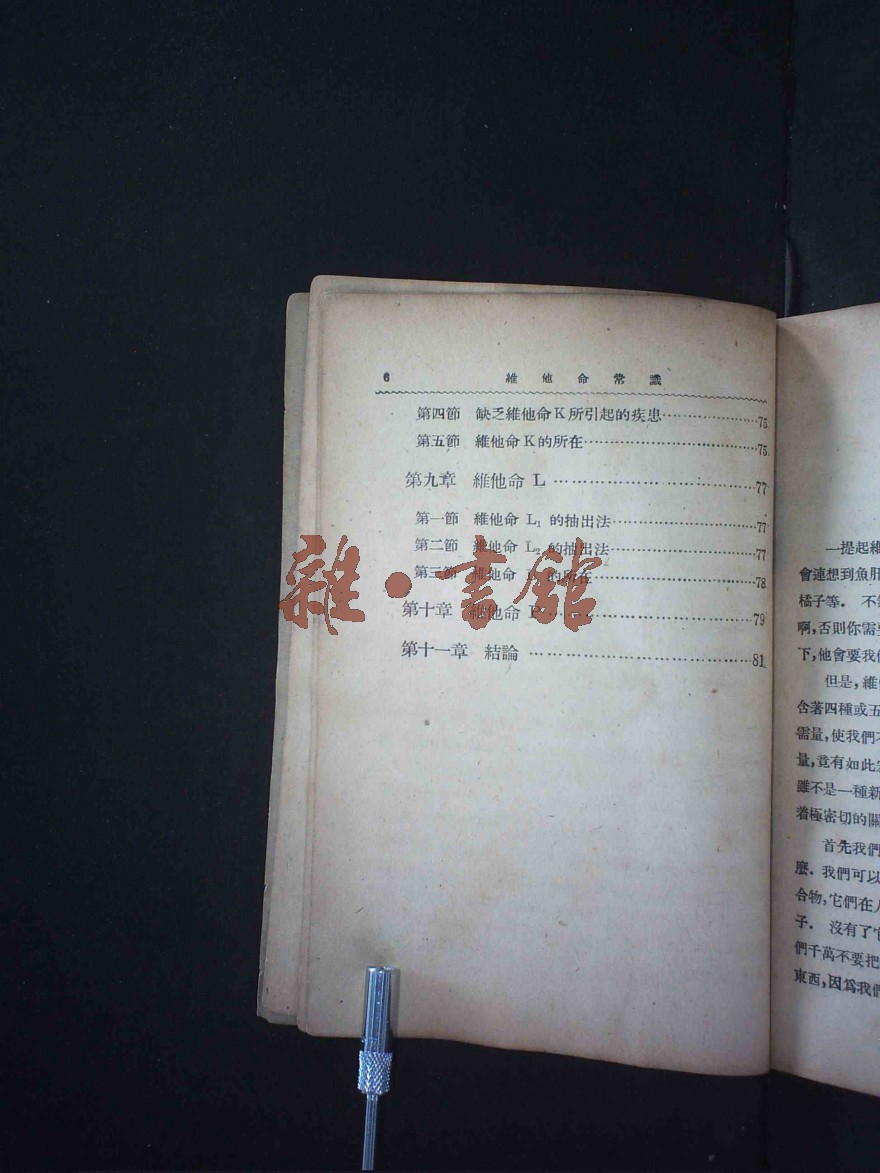 6 維他命常識
第四節 缺乏維他命K所引起的疾患⋯⋯⋯⋯75
第五節 維他命K的所在⋯⋯⋯⋯75
第九章 維他命 L⋯⋯⋯⋯77
第一節 維他命 L₁ 的抽出法⋯⋯⋯⋯77
第二節 維他命 L₂ 的抽出法⋯⋯⋯⋯77
第三節 維他命 的所在⋯⋯⋯⋯78
第十章 維他命 P⋯⋯⋯⋯79
第十一章 結論⋯⋯⋯⋯81
雜·書館
一提起維
會連想到魚肝
橘子等．不
啊,否則你需
下,他會要我們
但是,維
含著四種或五
需量,使我們不
量,竟有如此
雖不是一種新
着極密切的關
首先我們
麼．我們可以
合物,它們在人
子．沒有了它
們千萬不要把
東西,因爲我們